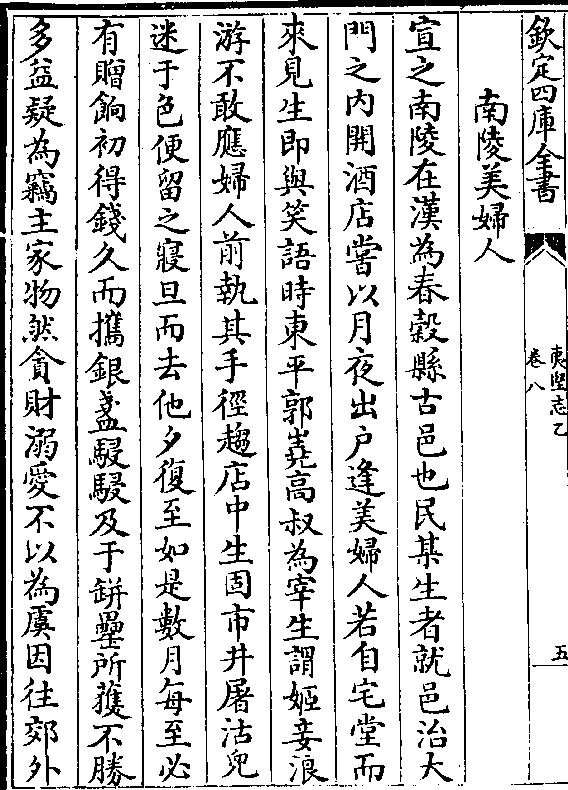 欽定四庫全書
夷堅志乙
卷八
五
南陵美婦人
宣之南陵在漢為春穀縣古邑也民某生者就邑治大
門之内開酒店嘗以月夜出户逢美婦人若自宅堂而
來見生即與笑語時東平郭嶤高叔為宰生謂姬妾浪
游不敢應婦人前執其手徑趨店中生固市井屠沽兒
迷于色便留之寢旦而去他夕復至如是數月每至必
有贈餉初得錢久而攜銀盞駸駸及于缾罍所獲不勝
多益疑為竊主家物然貪財溺愛不以為虞因往郊外